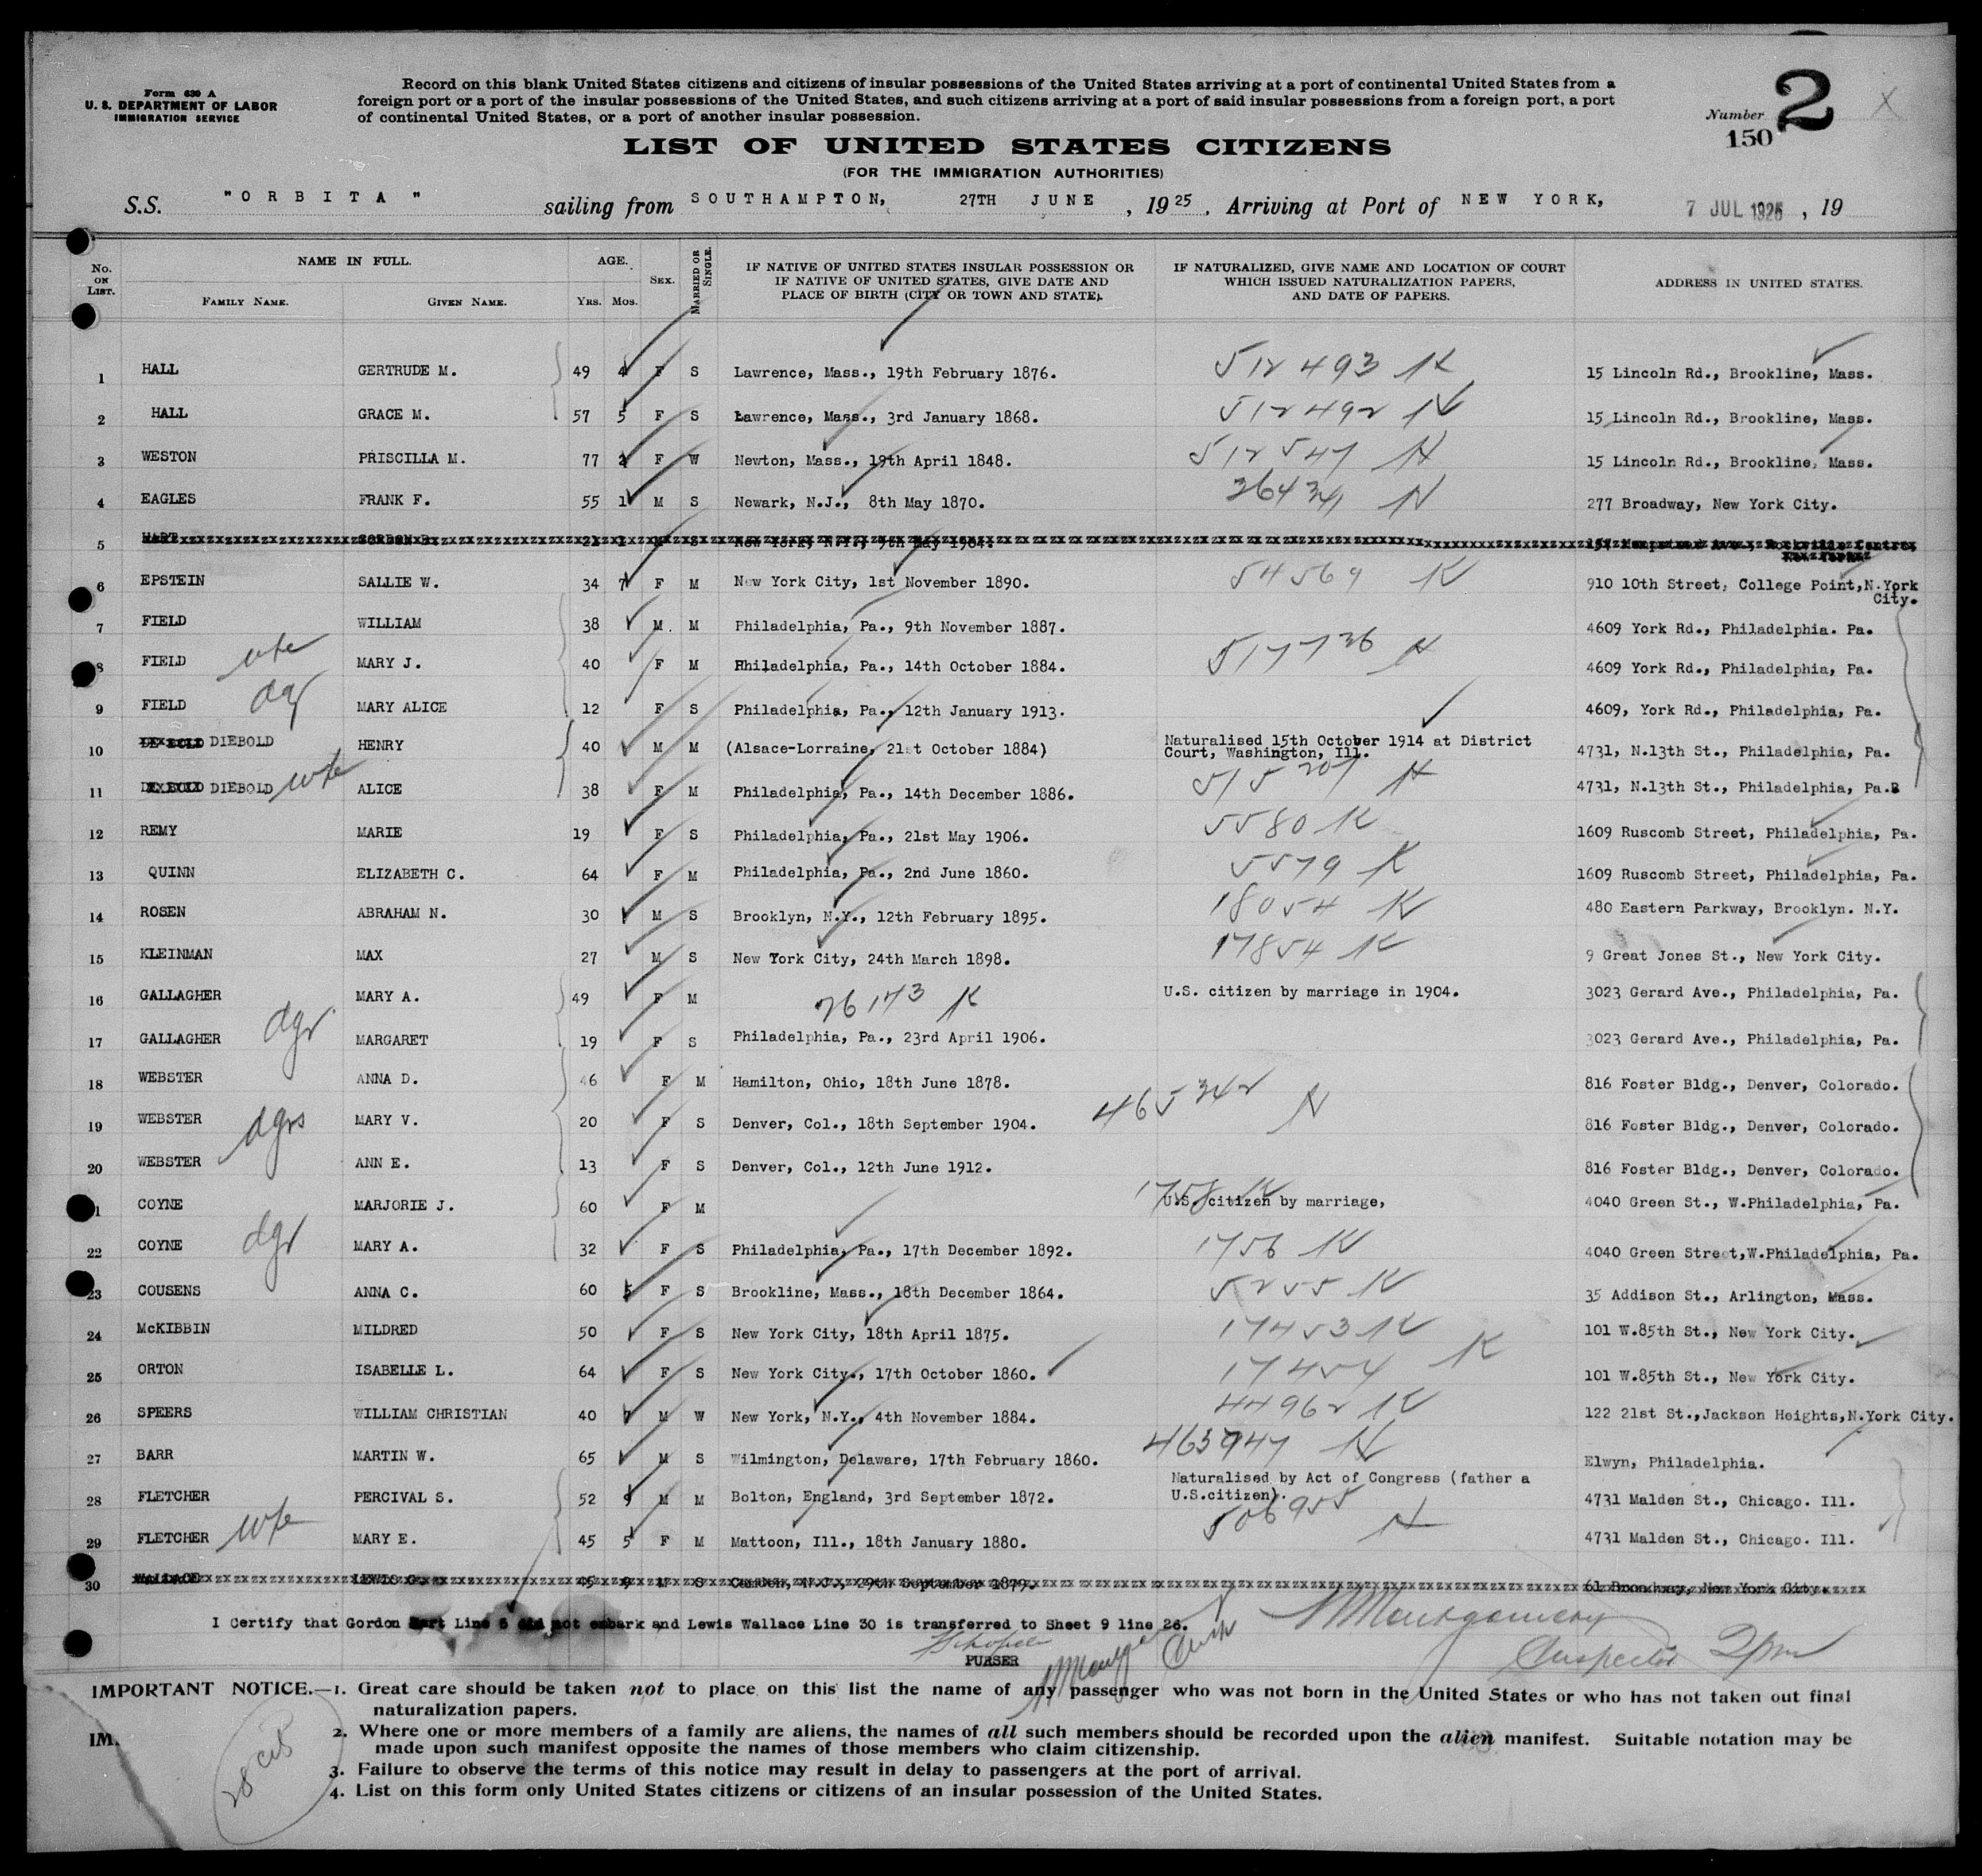 Form 630 A
U. S. DEPARTMENT OF LABOR
IMMIGRATION SERVICE
Record on this blank United States citizens and citizens of insular possessions of the United States arriving at a port of continental United States from a
foreign port or a port of the insular possessions of the United States, and such citizens arriving at a port of said insular possessions from a foreign port, a port
of continental United States, or a port of another insular possession.
Number 2 X
150
LIST OF UNITED STATES CITIZENS
(FOR THE IMMIGRATION AUTHORITIES)
S.S. "ORBITA" sailing from SOUTHAMPTON, 27TH JUNE, 1925, Arriving at Port of NEW YORK, 7 JUL 1925, 19
No. ON LIST. NAME IN FULL. FAMILY NAME. GIVEN NAME. AGE. YRS. MOS. SEX. MARRIED OR SINGLE. IF NATIVE OF UNITED STATES INSULAR POSSESSION OR IF NATIVE OF UNITED STATES, GIVE DATE AND PLACE OF BIRTH (CITY OR TOWN AND STATE). IF NATURALIZED, GIVE NAME AND LOCATION OF COURT WHICH ISSUED NATURALIZATION PAPERS, AND DATE OF PAPERS. ADDRESS IN UNITED STATES.
1 HALL GERTRUDE M. 49 4 F S Lawrence, Mass., 19th February 1876. 512493 K 15 Lincoln Rd., Brookline, Mass.
2 HALL GRACE M. 57 5 F S Lawrence, Mass., 3rd January 1868. 512492 K 15 Lincoln Rd., Brookline, Mass.
3 WESTON PRISCILLA M. 77 2 F W Newton, Mass., 19th April 1848. 512547 K 15 Lincoln Rd., Brookline, Mass.
4 EAGLES FRANK F. 55 1 M S Newark, N.J., 8th May 1870. 277 Broadway, New York City.
5 HART GORDON 21 1 M S New York, N.Y., 9th May 1904.
6 EPSTEIN SALLIE W. 34 7 F M New York City, 1st November 1890. 54569 K 910 10th Street, College Point, N.York City.
7 FIELD WILLIAM 38 M M Philadelphia, Pa., 9th November 1887. 4609 York Rd., Philadelphia. Pa.
8 FIELD wfe MARY J. 40 F M Philadelphia, Pa., 14th October 1884. 517736 K 4609 York Rd., Philadelphia, Pa.
9 FIELD dgr MARY ALICE 12 F S Philadelphia, Pa., 12th January 1913. 4609, York Rd., Philadelphia, Pa.
10 DIEBOLD HENRY 40 M M (Alsace-Lorraine, 21st October 1884) Naturalised 15th October 1914 at District Court, Washington, Ill. 4731, N.13th St., Philadelphia, Pa.
11 DIEBOLD wfe ALICE 38 F M Philadelphia, Pa., 14th December 1886. 515207 K 4731, N.13th St., Philadelphia, Pa.
12 REMY MARIE 19 F S Philadelphia, Pa., 21st May 1906. 5580 K 1609 Ruscomb Street, Philadelphia, Pa.
13 QUINN ELIZABETH C. 64 F M Philadelphia, Pa., 2nd June 1860. 5579 K 1609 Ruscomb Street, Philadelphia, Pa.
14 ROSEN ABRAHAM N. 30 M S Brooklyn, N.Y., 12th February 1895. 18054 K 480 Eastern Parkway, Brooklyn. N.Y.
15 KLEINMAN MAX 27 M S New York City, 24th March 1898. 17854 K 9 Great Jones St., New York City.
16 GALLAGHER MARY A. 49 F M 26173 K U.S. citizen by marriage in 1904. 3023 Gerard Ave., Philadelphia, Pa.
17 GALLAGHER dgr MARGARET 19 F S Philadelphia, Pa., 23rd April 1906. 3023 Gerard Ave., Philadelphia, Pa.
18 WEBSTER ANNA D. 46 F M Hamilton, Ohio, 18th June 1878. 816 Foster Bldg., Denver, Colorado.
19 WEBSTER dgrs MARY V. 20 F S Denver, Col., 18th September 1904. 465342 K 816 Foster Bldg., Denver, Colorado.
20 WEBSTER ANN E. 13 F S Denver, Col., 12th June 1912. 816 Foster Bldg., Denver, Colorado.
1 COYNE MARJORIE J. 60 F M 1758 K U.S. citizen by marriage, 4040 Green St., W.Philadelphia, Pa.
22 COYNE dgr MARY A. 32 F S Philadelphia, Pa., 17th December 1892. 1756 K 4040 Green Street, W.Philadelphia, Pa.
23 COUSENS ANNA C. 60 5 F S Brookline, Mass., 18th December 1864. 5255 K 35 Addison St., Arlington, Mass.
24 McKIBBIN MILDRED 50 F S New York City, 18th April 1875. 17453 K 101 W.85th St., New York City.
25 ORTON ISABELLE L. 64 F S New York City., 17th October 1860. 17454 K 101 W.85th St., New York City.
26 SPEERS WILLIAM CHRISTIAN 40 7 M W New York, N.Y., 4th November 1884. 44962 K 122 21st St., Jackson Heights, N.York City.
27 BARR MARTIN W. 65 M S Wilmington, Delaware, 17th February 1860. 463947 K Elwyn, Philadelphia.
28 FLETCHER PERCIVAL S. 52 9 M M Bolton, England, 3rd September 1872. Naturalised by Act of Congress (father a U.S.citizen). 4731 Malden St., Chicago. Ill.
29 FLETCHER wfe MARY E. 45 5 F M Mattoon, Ill., 18th January 1880. 506955 K 4731 Malden St., Chicago. Ill.
30 WALLACE LEWIS G. 45 9 M S Camden, N.J., 29th September 1879. 61 Broadway, New York City.
I Certify that Gordon Hart Line 5 did not embark and Lewis Wallace Line 30 is transferred to Sheet 9 line 26.
PURSER
Montgomery
Inspector 2pm
IMPORTANT NOTICE.—1. Great care should be taken not to place on this list the name of any passenger who was not born in the United States or who has not taken out final
naturalization papers.
IM. 2. Where one or more members of a family are aliens, the names of all such members should be recorded upon the alien manifest. Suitable notation may be
made upon such manifest opposite the names of those members who claim citizenship.
3. Failure to observe the terms of this notice may result in delay to passengers at the port of arrival.
4. List on this form only United States citizens or citizens of an insular possession of the United States.
28 cit